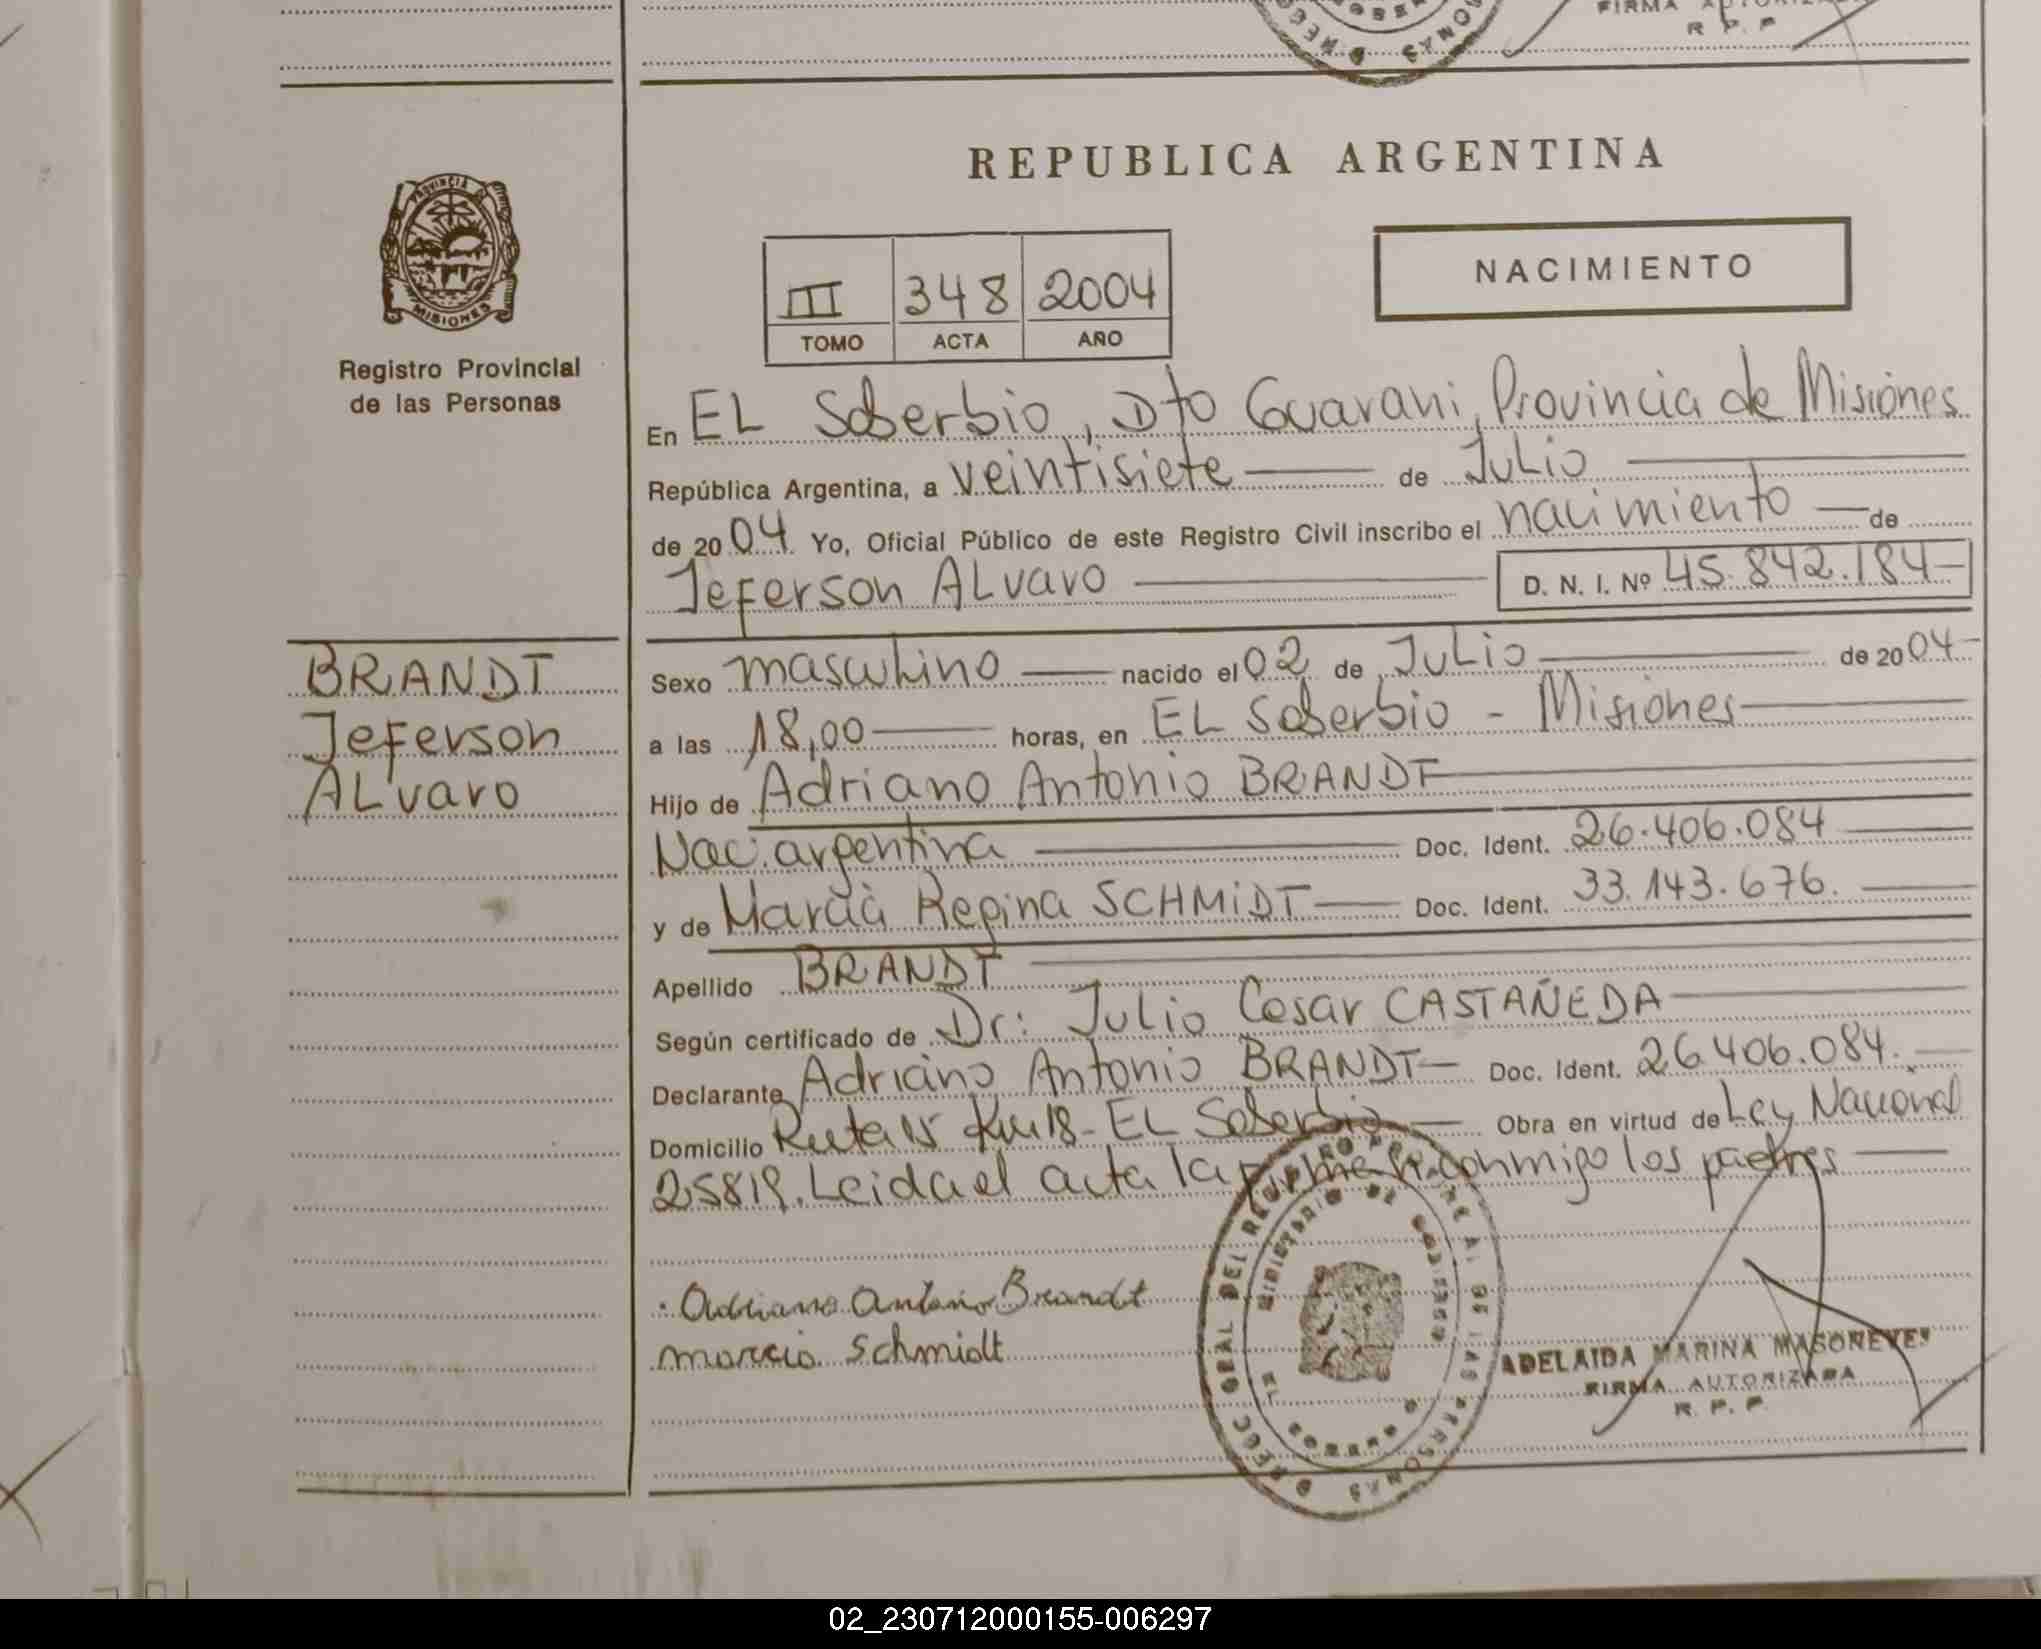 FIRMA AUTORIZA
R. P. P
PROVINCIA DE
MISIONES
REPUBLICA ARGENTINA
NACIMIENTO
III 348 2004
TOMO ACTA AÑO
Registro Provincial
de las Personas
En EL Soberbio, Dto Guarani, Provincia de Misiones
República Argentina, a veintisiete de Julio
de 2004 Yo, Oficial Público de este Registro Civil inscribo el nacimiento de
Jeferson ALvaro D. N. I. Nº 45.842.184
BRANDT
Jeferson
ALvaro
Sexo masculino nacido el 02 de Julio de 2004
a las 18,00 horas, en EL Soberbio - Misiones
Hijo de Adriano Antonio BRANDT
Nac. argentina Doc. Ident. 26.406.084
y de Marcia Regina SCHMIDT Doc. Ident. 33.143.676.
Apellido BRANDT
Según certificado de Dr: Julio Cesar CASTAÑEDA
Declarante Adriano Antonio BRANDT Doc. Ident. 26.406.084.
Domicilio Ruta 15 Km 18 - EL Soberbio Obra en virtud de Ley Nacional
25819. Leida el acta la firman conmigo los padres
Adriano Antonio Brandt
marcia Schmidt
ADELAIDA MARINA
FIRMA AUTORIZADA
R. P. P
DEL REGISTRO DE LAS PERSONAS
MINISTERIO DE GOBIERNO
02_230712000155-006297